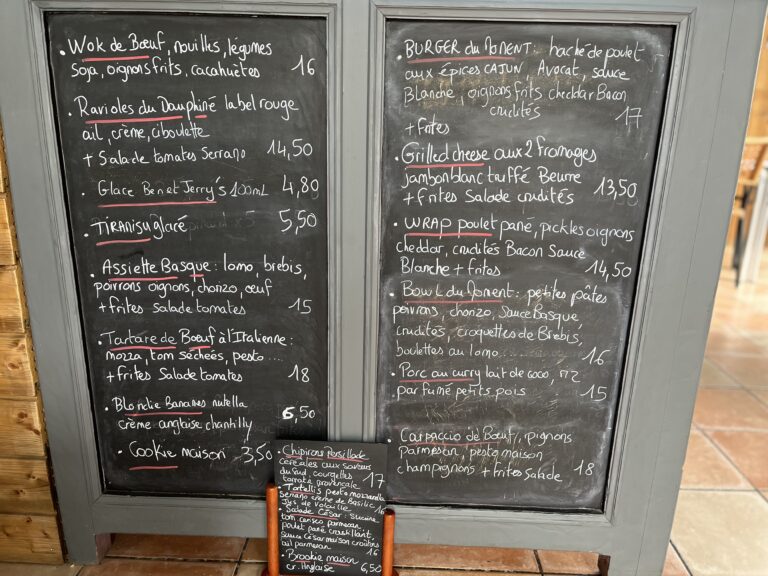 . Wok de Bœuf, nouilles, légumes
soja, oignons frits, cacahuètes 16
. Ravioles du Dauphiné label rouge
ail, crème, ciboulette
+ Salade tomates Serrano 14,50
. Glace Ben et Jerry's 100mL 4,80
. TIRAMISU glacé 5,50
. Assiette Basque : lomo, brebis,
poivrons oignons, chorizo, œuf
+ frites Salade tomates 15
. Tartare de Bœuf à l'Italienne :
mozza, tom séchées, pesto ....
+ frites Salade tomates 18
. Blondie Bananes nutella
crème anglaise chantilly 6,50
. Cookie maison 3,50
. BURGER du MOMENT : haché de poulet
aux épices CAJUN, Avocat, sauce
Blanche oignons frits cheddar Bacon
crudités 17
+ frites
. Grilled cheese aux 2 fromages
jambon blanc truffé Beurre
+ frites Salade crudités 13,50
. WRAP poulet pané, pickles oignons
cheddar, crudités Bacon Sauce
Blanche + frites 14,50
. Bowl du Moment : petites pâtes
poivrons, chorizo, Sauce Basque,
crudités, croquettes de Brebis,
boulettes au lomo... 16
. Porc au curry lait de coco, riz
parfumé petits pois 15
. Carpaccio de Bœuf, pignons
Parmesan, pesto maison
champignons + frites Salade 18
. Chipirons Persillade
céréales aux saveurs
du Sud, courgettes
tomate provençale 17
. Tortellis pesto mozzarella
Serrano crème de Basilic
Jus de Volaille 16
. Salade César : sucrine
tom cerises parmesan
poulet pané croustillant
sauce César maison croûtons
ail parmesan 16
. Brookie maison
cr. Anglaise 6,50